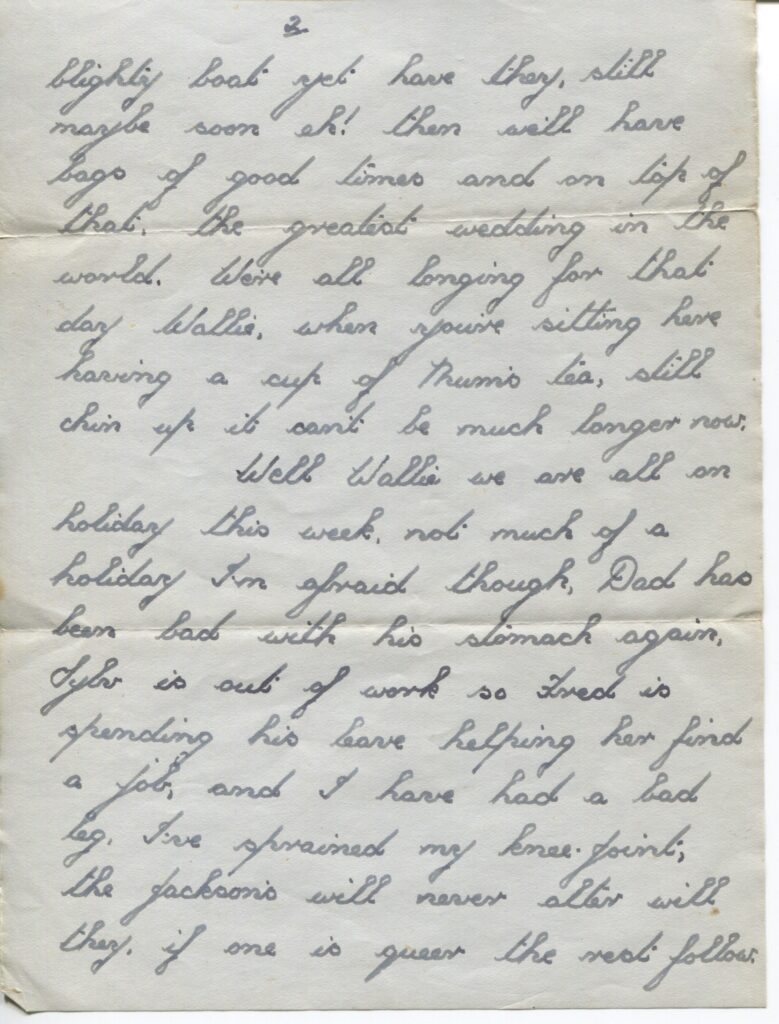 2
blighty boat yet have they, still
maybe soon eh! then we'll have
bags of good times and on top of
that, the greatest wedding in the
world. We're all longing for that
day Wallie, when you're sitting here
having a cup of Mum's tea, still
chin up it can't be much longer now.
Well Wallie we are all on
holiday this week, not much of a
holiday I'm afraid though, Dad has
been bad with his stomach again,
Sylv is out of work so Fred is
spending his leave helping her find
a job, and I have had a bad
leg, I've sprained my knee-joint,
the Jackson's will never alter will
they, if one is queer the rest follow.